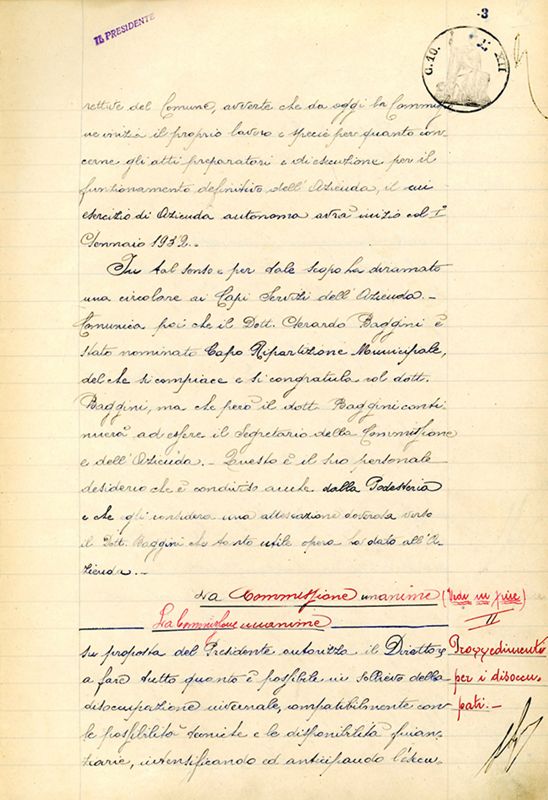 3
IL PRESIDENTE
G. 10. L. XII
rettive del Comune, avverte che da oggi la Commissio
ne inizia il proprio lavoro e specie per quanto con-
cerne gli atti preparatori e di esecuzione per il
funzionamento definitivo dell'Azienda, il cui
esercizio di Azienda autonoma avrà inizio col 1°
Gennaio 1932.-
In tal senso e per tale scopo ha diramato
una circolare ai Capi Servizi dell'Azienda.-
Comunica poi che il Dott. Gerardo Baggini è
stato nominato Capo Ripartizione Municipale,
del che si compiace e si congratula col dott.
Baggini, ma che però il dott. Baggini conti
nuerà ad essere il Segretario della Commissione
e dell'Azienda.- Questo è il suo personale
desiderio che è condiviso anche dalla Podesteria
e che egli considera una attestazione doverosa verso
il Dott. Baggini che tanto utile opera ha dato all'A-
zienda.-
La Commissione unanime (Vedi in fine)
La Commissione unanime
su proposta del Presidente autorizza il Direttore
a fare tutto quanto è possibile in sollievo della
disoccupazione invernale, compatibilmente con
le possibilità tecniche e le disponibilità finan-
ziarie, intensificando ed anticipando l'esecu-
Provvedimenti
per i disoccu-
pati.-